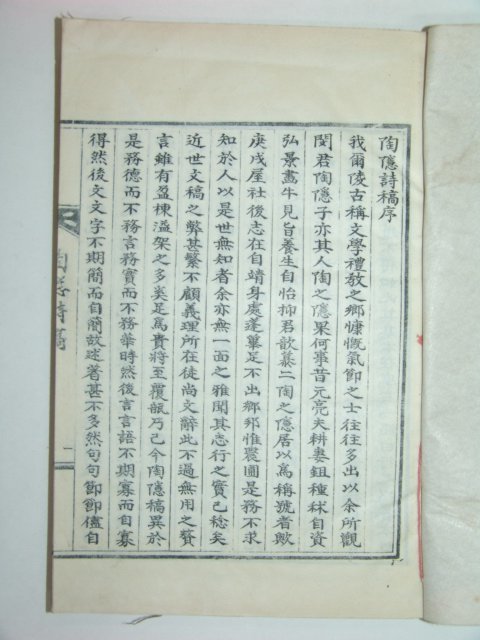 陶隱詩稿序
我爾陵古稱文學禮教之鄉慷慨氣節之士往往多出以余所觀
閔君陶隱子亦其人陶之隱果何事昔元亮夫耕妻鉏種秫自資
弘景畵牛見旨養生自怡柿君歆慕二陶之隱居以爲稱號者歟
庚戌屋社後志在自靖身處蓬蓽足不出鄉邦惟農圃是務不求
知於人以是世無知者余亦無一面之雅聞其志行之實已稔矣
近世文稿之弊甚繁不顧義理所在徒尚文辭此不過無用之贅
言雖有盈棟溢架之多奚足爲貴將至覆瓿乃已今陶隱稿異於
是務德而不務言務實而不務華時然後言言語不期寡而自寡
得然後文文字不期簡而自簡故述著甚不多然句句節節儘自
陶隱詩稿
一